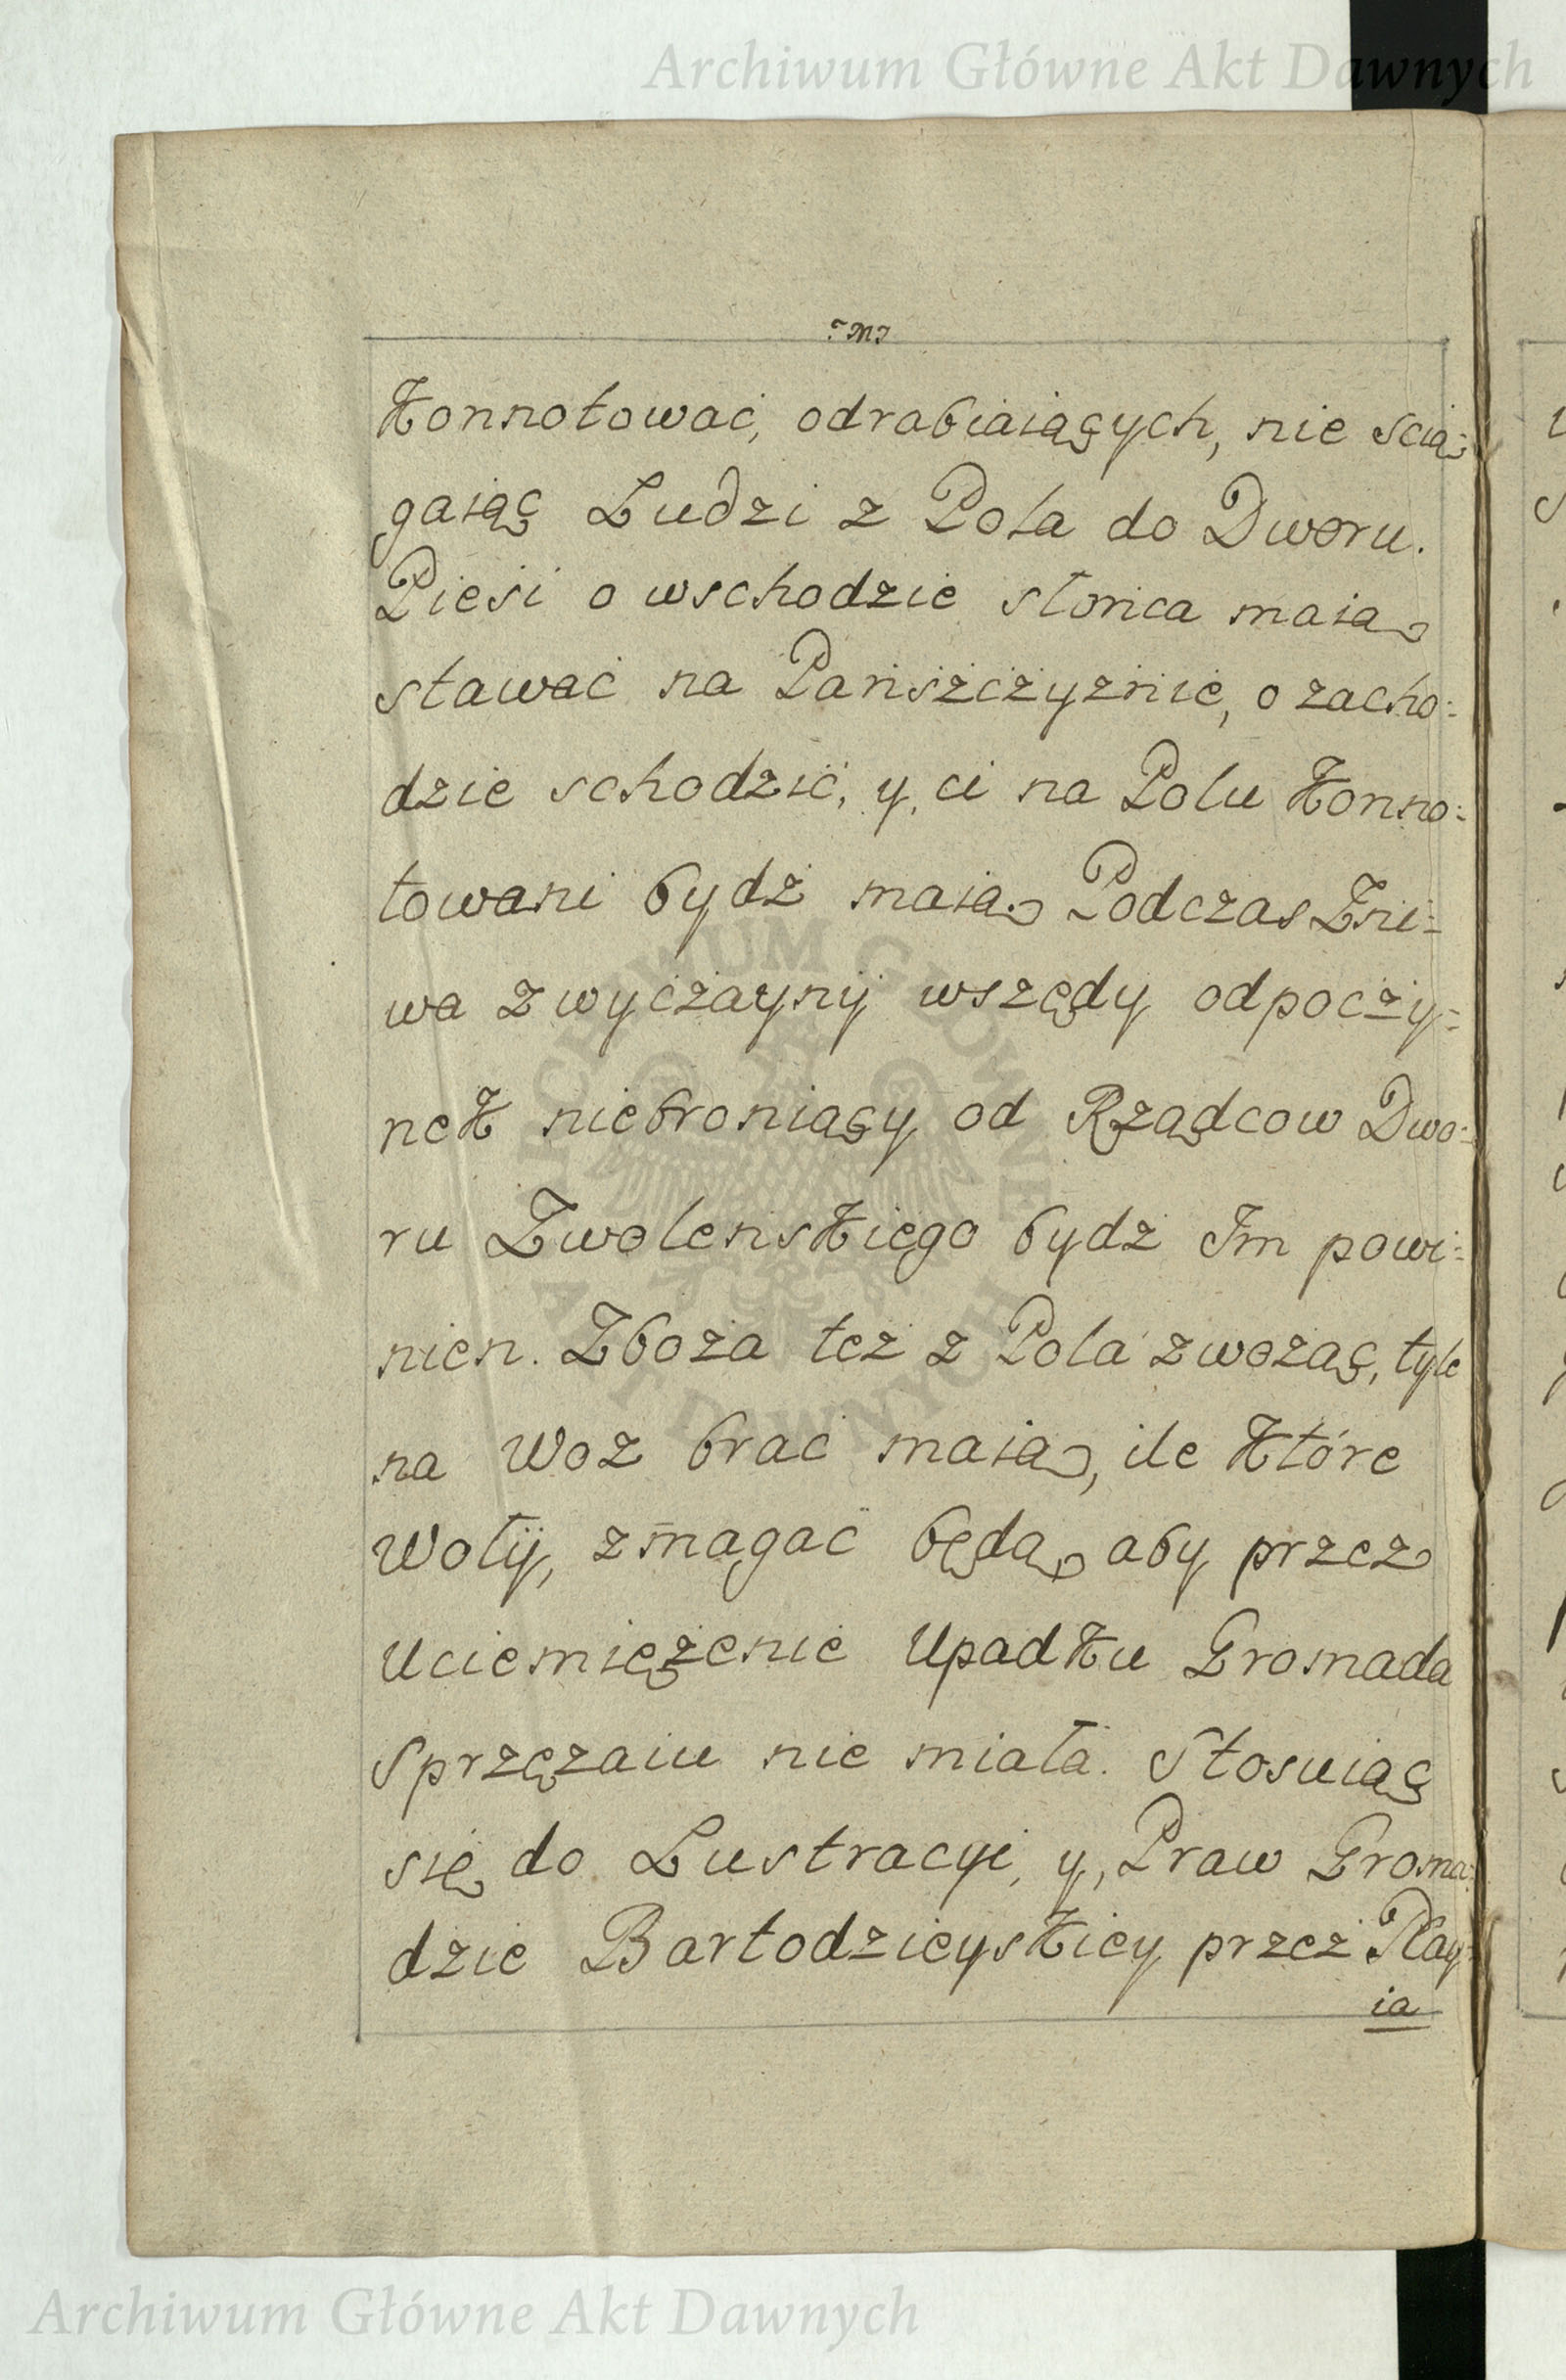 Archiwum Główne Akt Dawnych
Konnotować, odrabiaiących, nie ścią=
gaiąc Ludzi z Pola do Dworu.
Piesi o wschodzie słońca maią
stawać na Pańszczyznie, o zacho=
dzie schodzić, y, ci na Polu Konno=
towani bydź maią. Podczas Żni=
wa zwyczaynÿ wszędy odpoczy=
nek niebroniący od Rządcow Dwo=
ru Zwolenskiego bydź Im powi=
nien. Zboża też z Pola zwożąc, tyle
na Woz brać maią, ile które
Wołÿ, zmagać będą, aby przez
Uciemiężenie Upadku Gromada
Sprzężaiu nie miała. Stosuiąc
się do Lustracyi, y, Praw Groma=
dzie Bartodzieyskiey przez Nay=
ia
ARCHIWUM GŁÓWNE
AKT DAWNYCH
Archiwum Główne Akt Dawnych